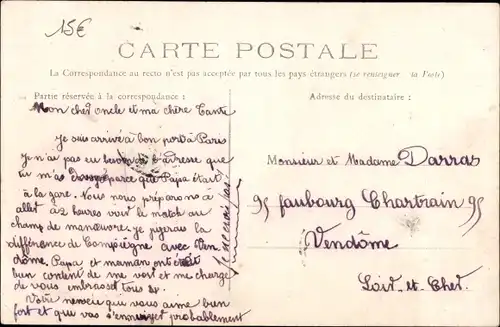 15€
CARTE POSTALE
La Correspondance au recto n'est pas acceptée par tous les pays étrangers (se renseigner la Poste)
Partie réservée à la correspondance :
Adresse du destinataire :
Mon cher oncle et ma chère Tante
Je suis arrivé à bon port à Paris
Je n'ai pas eu besoin de l'adresse que
tu m'as parce que Papa était
à la gare. Nous nous préparons à
aller à 2 heures voir le match au
champ de manœuvre je
différence de Compiègne avec Ven
dôme. Papa et maman ont était
bien content de me voir et me charge
de vous embrasser tous
Votre neveu que vous aime bien
fort et que vas s'ennuyer probablement
Monsieur et Madame Darras
95 faubourg Chartrain 95
Vendôme
Loir-et-Cher